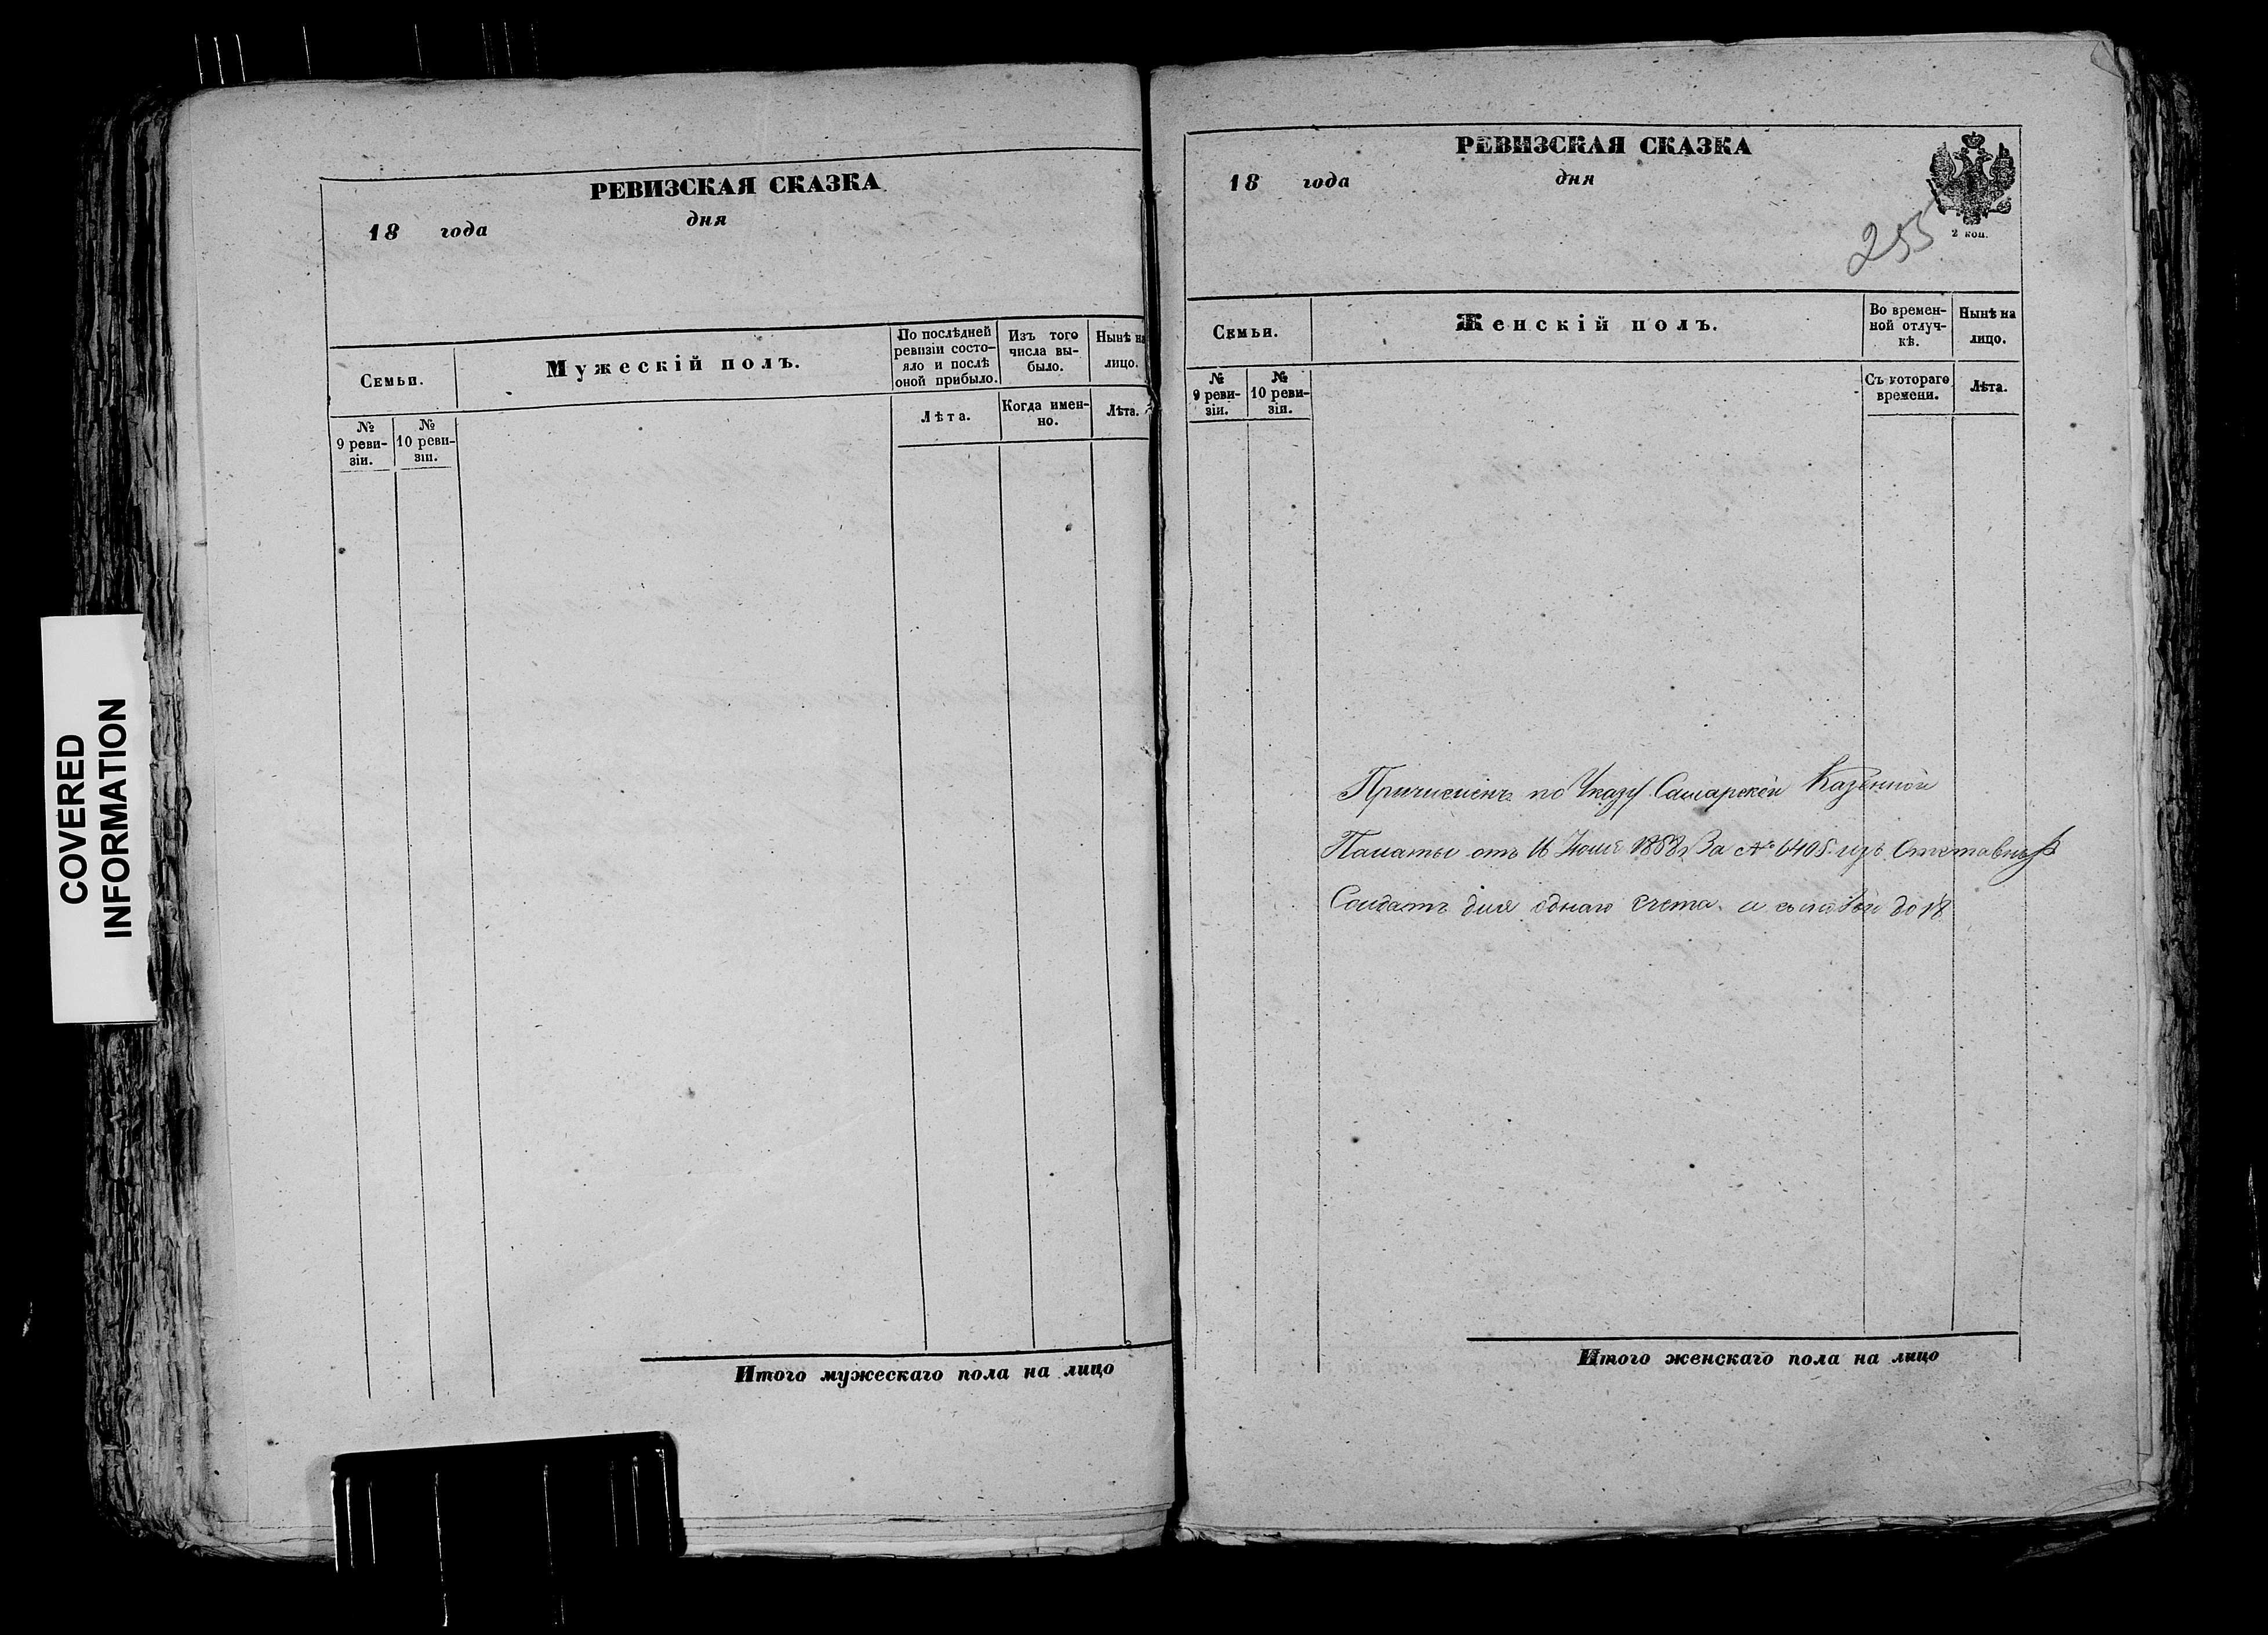 COVERED
INFORMATION
РЕВИЗСКАЯ СКАЗКА
18 года дня
Семьи.
Мужескій полъ.
По послѣдней
ревизіи состо-
яло и послѣ
оной прибыло.
Изъ того
числа вы-
было.
Нынѣ на
лицо.
№
9 реви-
зіи.
№
10 реви-
зіи.
Лѣта.
Когда имен-
но.
Лѣта.
Итого мужескаго пола на лицо
РЕВИЗСКАЯ СКАЗКА
18 года дня
2 коп.
255
Семьи.
Женскій полъ.
Во времен-
ной отлуч-
кѣ.
Нынѣ на
лицо.
№
9 реви-
зіи.
№
10 реви-
зіи.
Съ котораго
времени.
Лѣта.
Причисленъ по Указу Самарской Казенной
Палаты отъ 16 1858 За № 6405 изъ Отставныхъ
Солдатъ для однаго счета
Итого женскаго пола на лицо